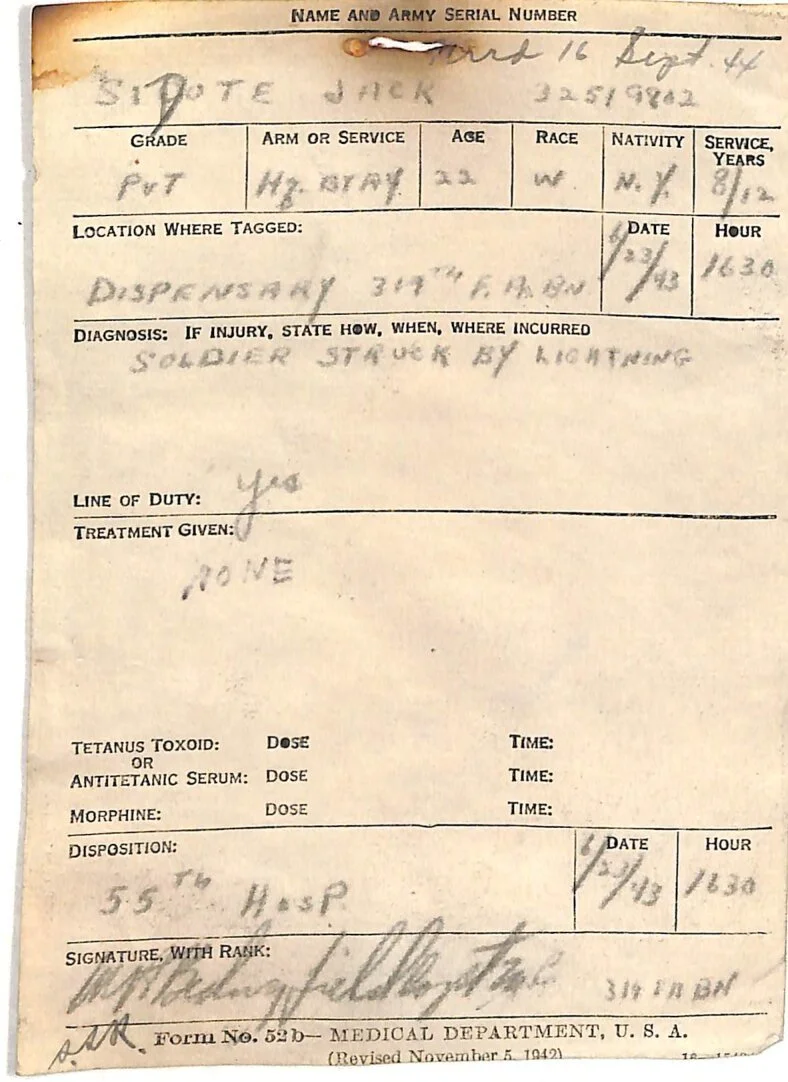 NAME AND ARMY SERIAL NUMBER
16 Sept. 44
JACK 32519802
GRADE ARM OR SERVICE AGE RACE NATIVITY SERVICE, YEARS
PVT Hq. BTRY 22 W N.Y. 8/12
LOCATION WHERE TAGGED: DATE HOUR
DISPENSARY 319TH F.A. BN 6/23/43 1630
DIAGNOSIS: IF INJURY, STATE HOW, WHEN, WHERE INCURRED
SOLDIER STRUCK BY LIGHTNING
LINE OF DUTY: yes
TREATMENT GIVEN:
NONE
TETANUS TOXOID: DOSE TIME:
OR
ANTITETANIC SERUM: DOSE TIME:
MORPHINE: DOSE TIME:
DISPOSITION: DATE HOUR
55TH HOSP 6/23/43 1630
SIGNATURE, WITH RANK:
319 FA BN
Form No. 52b— MEDICAL DEPARTMENT, U. S. A.
(Revised November 5, 1942)